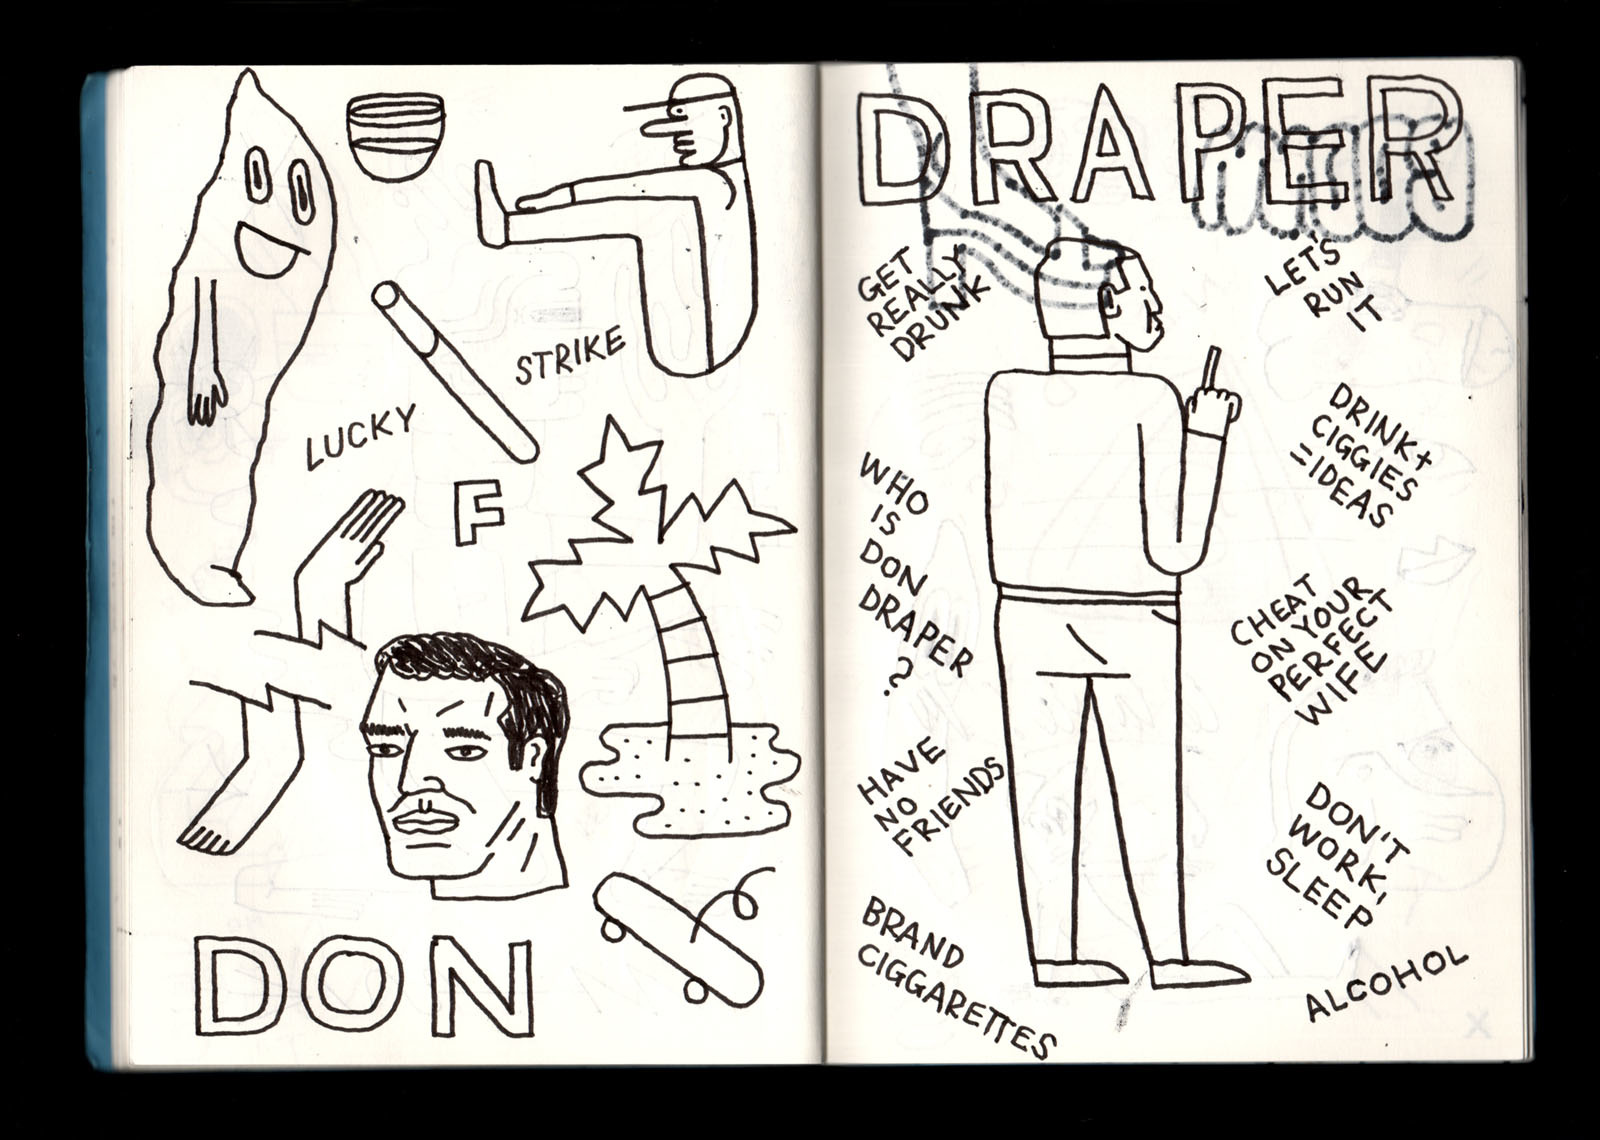 STRIKE
LUCKY
F
DON
DRAPER
GET
REALLY
DRUNK
LET'S
RUN
IT
DRINK+
CIGGIES
=IDEAS
WHO
IS
DON
DRAPER
?
CHEAT
ON YOUR
PERFECT
WIFE
HAVE
NO
FRIENDS
DON'T
WORK,
SLEEP
BRAND
CIGGARETTES
ALCOHOL
X